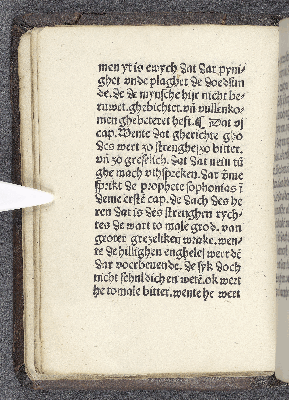 men yt is ewych dat dar pyni-
ghet vnde plaghet de doedsun
de. de de mynsche hijr nicht be-
ruwet. ghebichtet. vn̄ vullenko-
men ghebetert heft. ¶ Dat vj
cap. Wente dat gherichte gho
des wert zo strenghe zo bitter.
vn̄ zo greselick. dat dat nein tū
ghe mach vthspreken. dar vme
sprikt de prophete sophonias ī
deme erstē cap. de dach des he
ren dat is des strenghen rych-
tes de wart to male grod. van
groter grezeliken wrake. wen-
te de hillighen enghele werdē
dar vorveruende. de syk doch
nicht schuldich en wetē. ok wert
he to male bitter. wente he wert